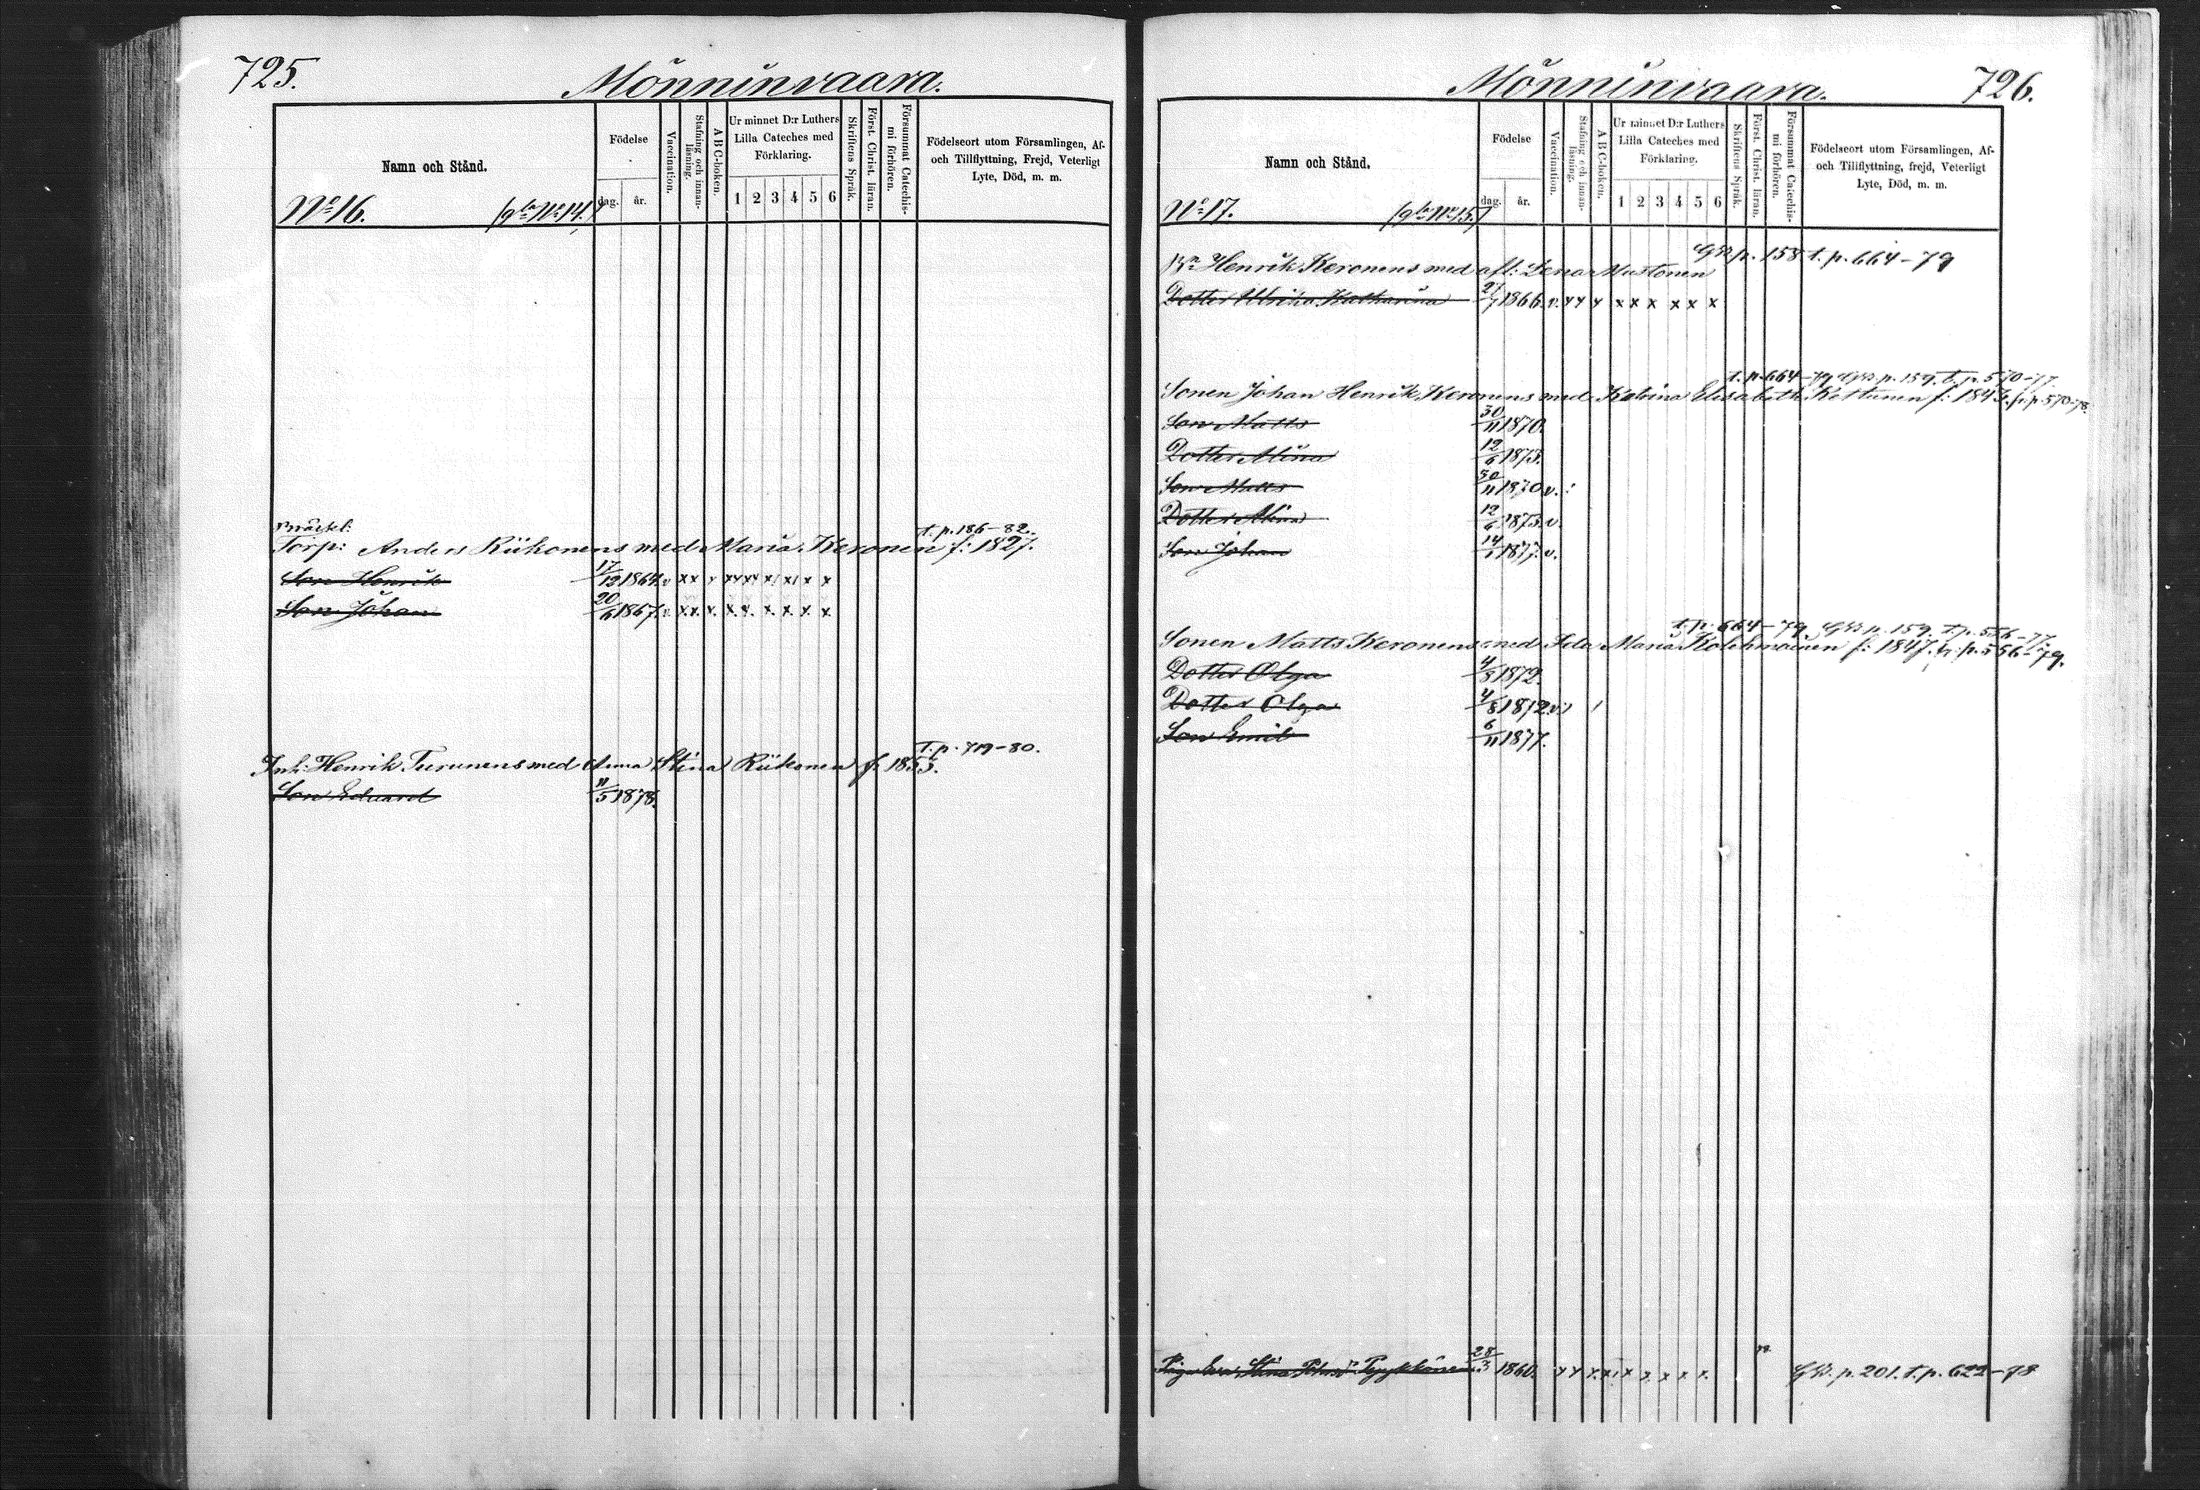 725.
Mönninvaara.
Namn och Stånd.
Födelse
dag.
år.
Vaccination.
Stafning och innan-läsning.
A B C-boken.
Ur minnet D:r Luthers
Lilla Cateches med
Förklaring.
1 2 3 4 5 6
Skriftens Språk.
Först. Christ. läran.
Försummat Catechis-mi förhören.
Födelseort utom Församlingen, Af-
och Tillflyttning, Frejd, Veterligt
Lyte, Död, m. m.
No 16. (gla No 14.)
t. p. 186-82.
Torp: Anders Riikonens med Maria Keronen f: 1827.
Son Henrik 17/12 1864. v x x x x x x x x x
Son Johan 20/6 1867. v. x x x. x x. x. x. x. x
t. p. 719-80.
Inh: Henrik Turunens med Anna Stina Riikonen f: 1853.
Son Eduard 11/5 1878.
726.
Mönninvaara.
Namn och Stånd.
Födelse
dag.
år.
Vaccination.
Stafning och innan-läsning.
A B C-boken.
Ur minnet D:r Luthers
Lilla Cateches med
Förklaring.
1 2 3 4 5 6
Skriftens Språk.
Först. Christ. läran.
Försummat Catechis-mi förhören.
Födelseort utom Församlingen, Af-
och Tillflyttning, frejd, Veterligt
Lyte, Död, m. m.
No 17. (gla No 15.)
p. 158 t. p. 664-79
Henrik Keronens med afl: Lena Mustonen
Dotter Ulrika Katharina 27/7 1866. v. x x x x x x x x x
t. p. 664-79 p. 159. t. p. 570-77.
Sonen Johan Henrik Keronens med Katrina Elisabeth Kettunen f: 1843. p. 570-78.
Son Matts 30/11 1870.
Dotter Alina 12/6 1873.
Son Matts 30/11 1870 v.
Dotter Alina 12/6 1873. v.
Son Johan 14/1 1877. v.
t. p. 664-79 p. 159. t. p. 556-77.
Sonen Matts Keronens med Maria Kolehmainen f: 1847. p. 556-79.
Dotter Olga 4/8 1872.
Dotter Olga 4/8 1872 v.
Son Emil 6/11 1877.
Stina Pyykkönen 28/3 1860. x x x x x x x x x p. 201. t. p. 622-78